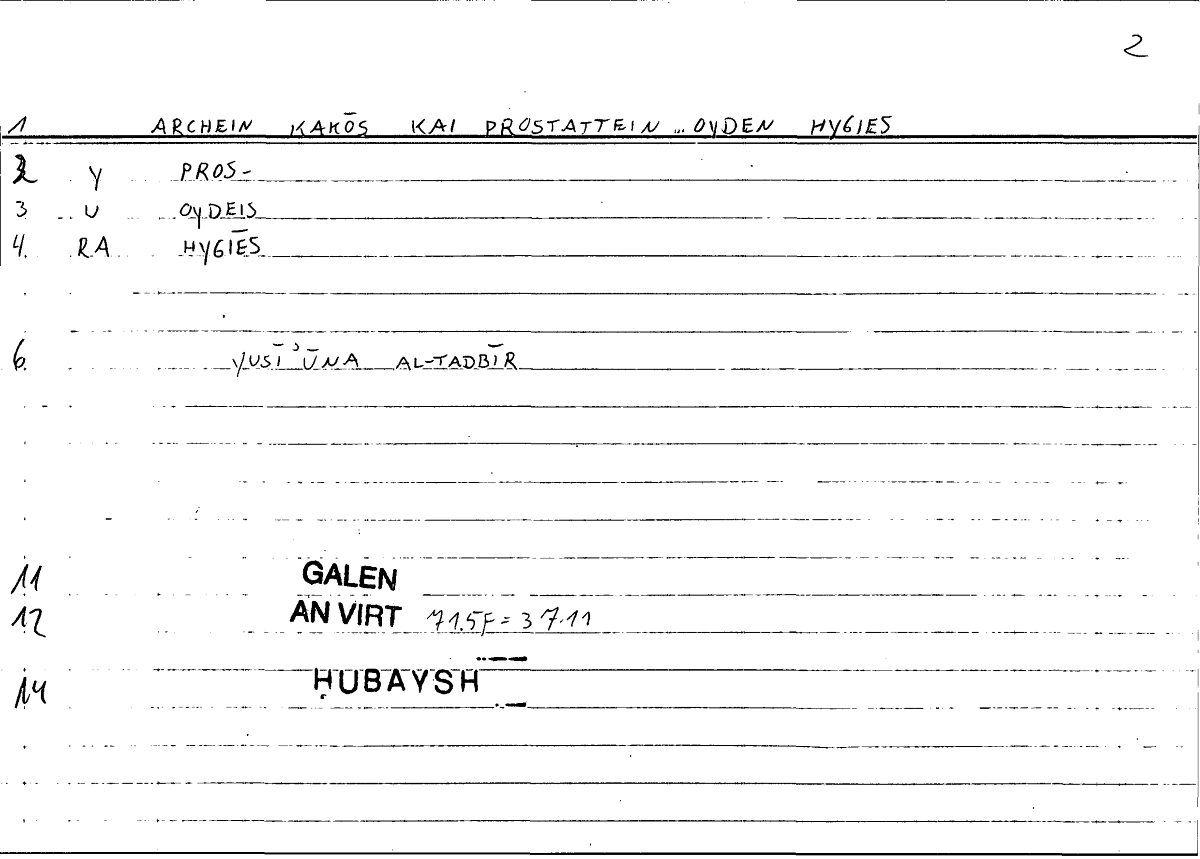 2
1 ARCHEIN KAKŌS KAI PROSTATTEIN ... OYDEN HYGIES
2 Y PROS-
3 U OYDEIS
4. RA HYGIĒS
6. YUSĪʾŪNA AL-TADBĪR
11 GALEN
12 AN VIRT 71.5F = 37.11
14 ḤUBAYSH